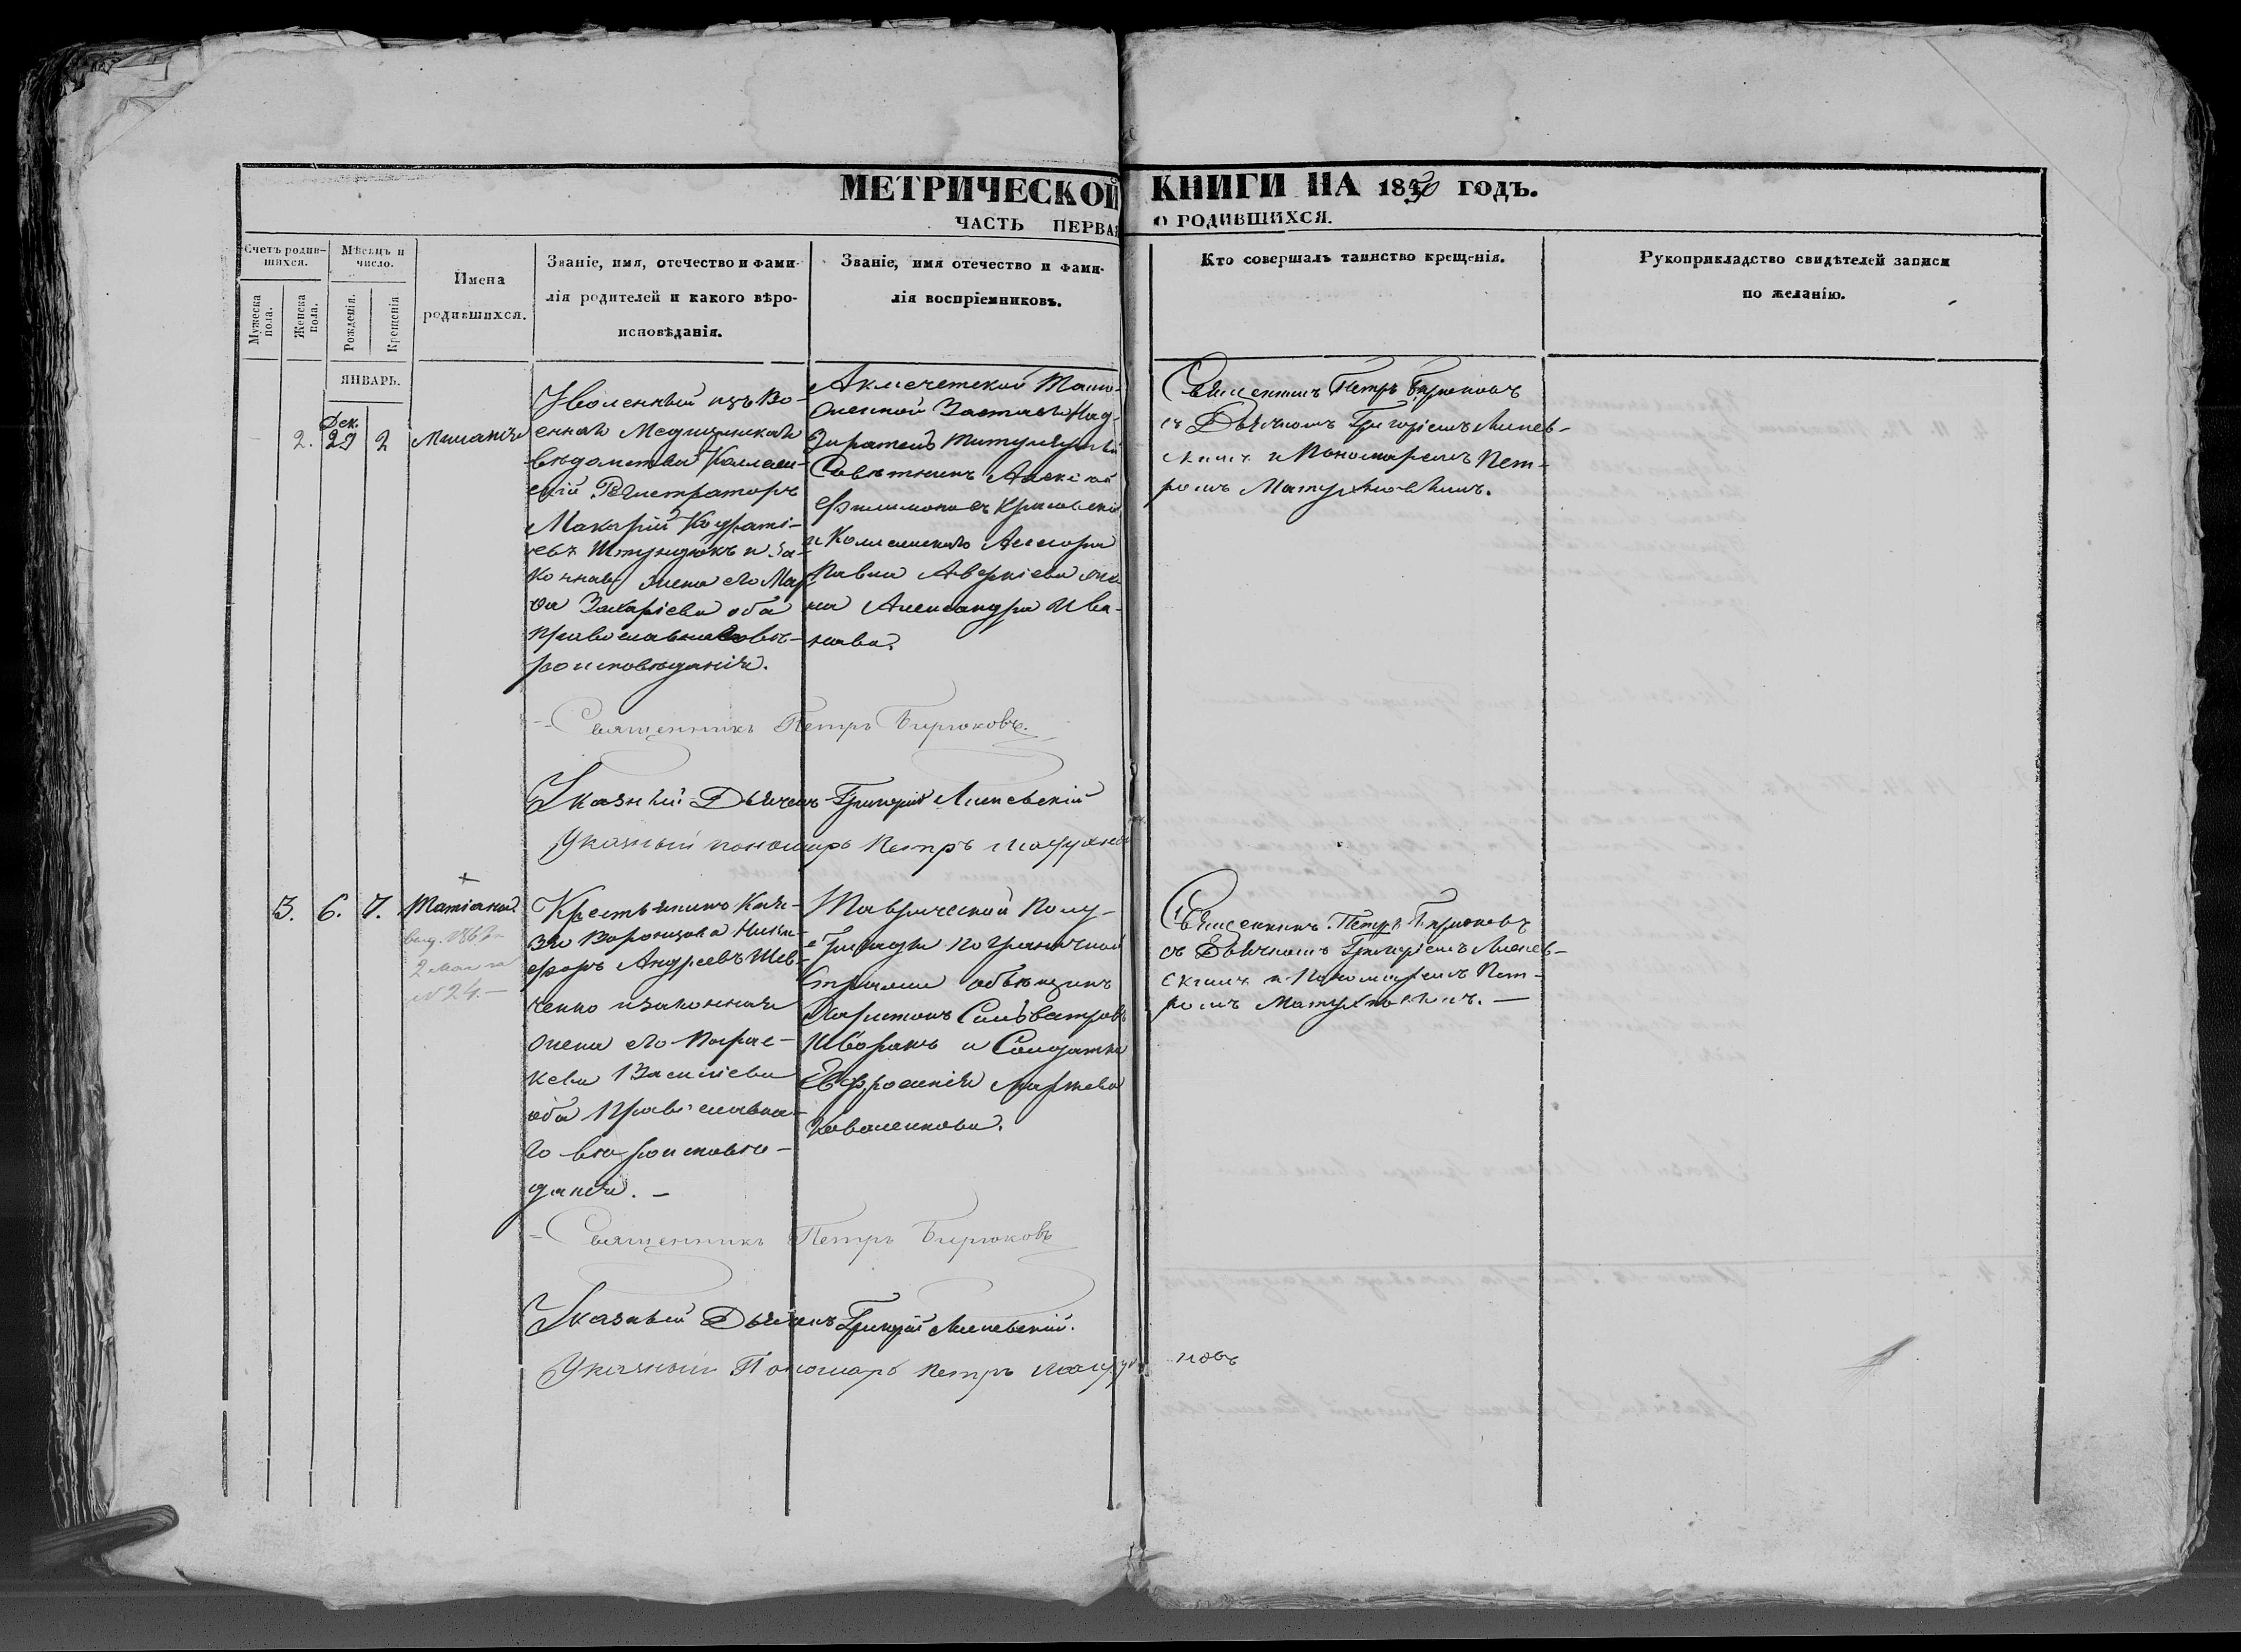 МЕТРИЧЕСКОЙ КНИГИ НА 1850 ГОДЪ.
ЧАСТЬ ПЕРВАЯ О РОДИВШИХСЯ.
Счетъ родив-
шихся.
Мужеска пола.
Женска пола.
Мѣсяцъ и
число.
Рожденія.
Крещенія
Имена
родившихся.
Званіе, имя, отечество и фами-
лія родителей и какого вѣро-
исповѣданія.
Званіе, имя отечество и фами-
лія воспріемниковъ.
Кто совершалъ таинство крещенія.
Рукоприкладство свидѣтелей записи
по желанію.
ЯНВАРЬ.
Дек.
2. 29 2 Меланія
Уволенный изъ Во-
еннаго Медицинскаго
вѣдомства Коллеж-
скій Регистраторъ
Макарій Кодраті-
евъ и за-
конная жена его Мар-
ѳа Захаріева оба
православнаго вѣ-
роисповѣданія.
Акмечетской Тамо-
женной Заставы Над-
зиратель Титулярный
Совѣтникъ Алексѣй
Филимоновъ
и Коллежскаго Ассесора
Павла Аверкіева же-
на Александра Ива-
нова.
Священникъ Петръ Бирюковъ
съ Дьячкомъ Григоріемъ Липев-
скимъ и Пономаремъ Пет-
ромъ Матухновымъ.
Священникъ Петръ Бирюковъ.
Указный Дьячекъ Григорій Липевскій
Указный пономарь Петръ Матухновъ
3. 6. 7. Татіана
выд.
2 Мая за
№ 24.—
Крестьянинъ Кня-
зя Воронцова Ники-
форъ Андреевъ Шев-
ченко и законная
жена его Парас-
кева Василіева
оба православна-
го вѣроисповѣ-
данія. —
Таврической Полу-
бригады пограничной
стражи объѣзчикъ
Харитонъ Сильвестровъ
и Солдатка
Евфросинія
Коваленкова.
Священникъ Петръ Бирюковъ
съ Дьячкомъ Григоріемъ Липев-
скимъ и Пономаремъ Пет-
ромъ Матухновымъ. —
Священникъ Петръ Бирюковъ
Указный Дьячекъ Григорій Липевскій.
Указный Пономарь Петръ Матухновъ